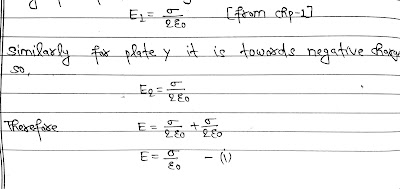 E₁ = σ/2ε₀ [from chp-1]
Similarly for plate y it is towards negative charge
so,
E₂ = σ/2ε₀
Therefore E = σ/2ε₀ + σ/2ε₀
E = σ/ε₀ – (i)